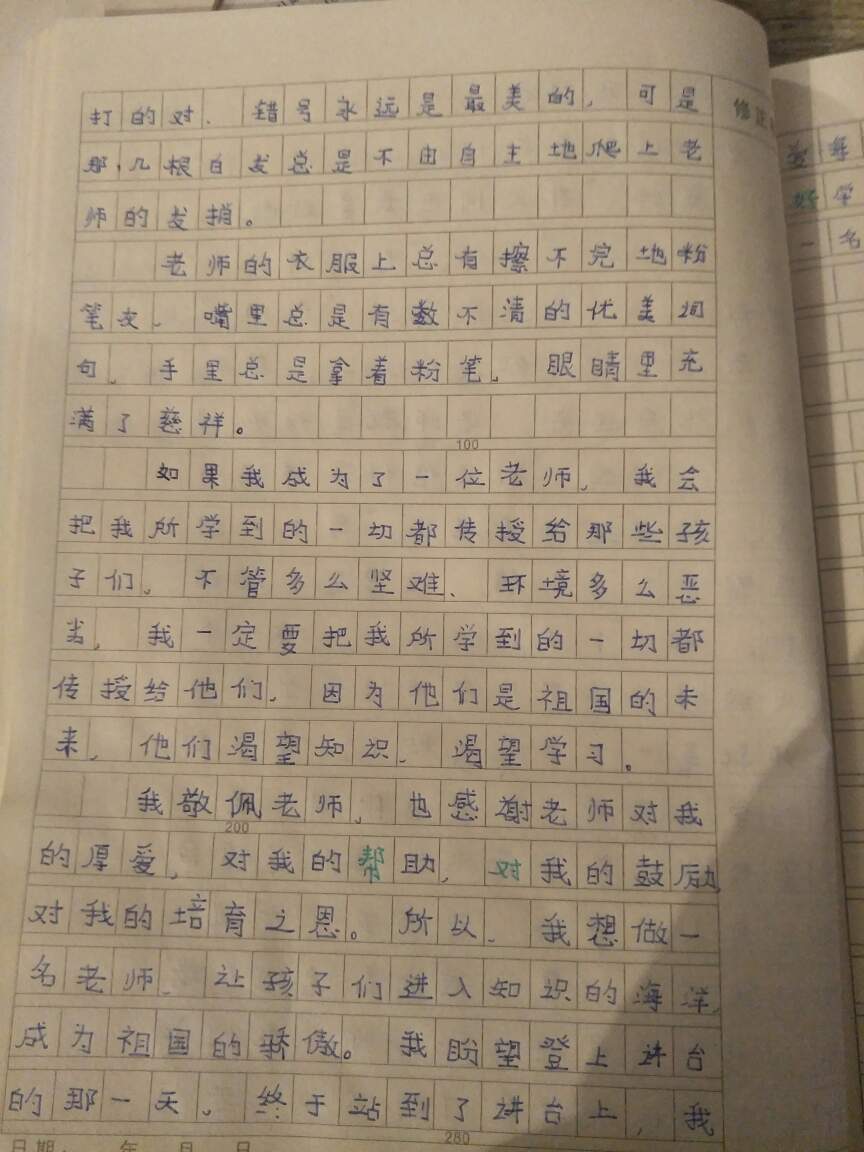 打的对、错号永远是最美的，可是
那，几根白发总是不由自主地爬上老
师的发捎。
老师的衣服上总有擦不完地粉
笔灰，嘴里总是有数不清的优美词
句，手里总是拿着粉笔，眼睛里充
满了慈祥。
100
如果我成为了一位老师，我会
把我所学到的一切都传授给那些孩
子们。不管多么坚难、环境多么恶
劣，我一定要把我所学到的一切都
传授给他们，因为他们是祖国的未
来，他们渴望知识，渴望学习。
我敬佩老师，也感谢老师对我
200
的厚爱，对我的帮助，对我的鼓励，
对我的培育之恩。所以，我想做一
名老师，让孩子们进入知识的海洋，
成为祖国的骄傲。我盼望登上讲台
的那一天。终于站到了讲台上，我
280
日期： 年 月 日
修正
每
好学
一名